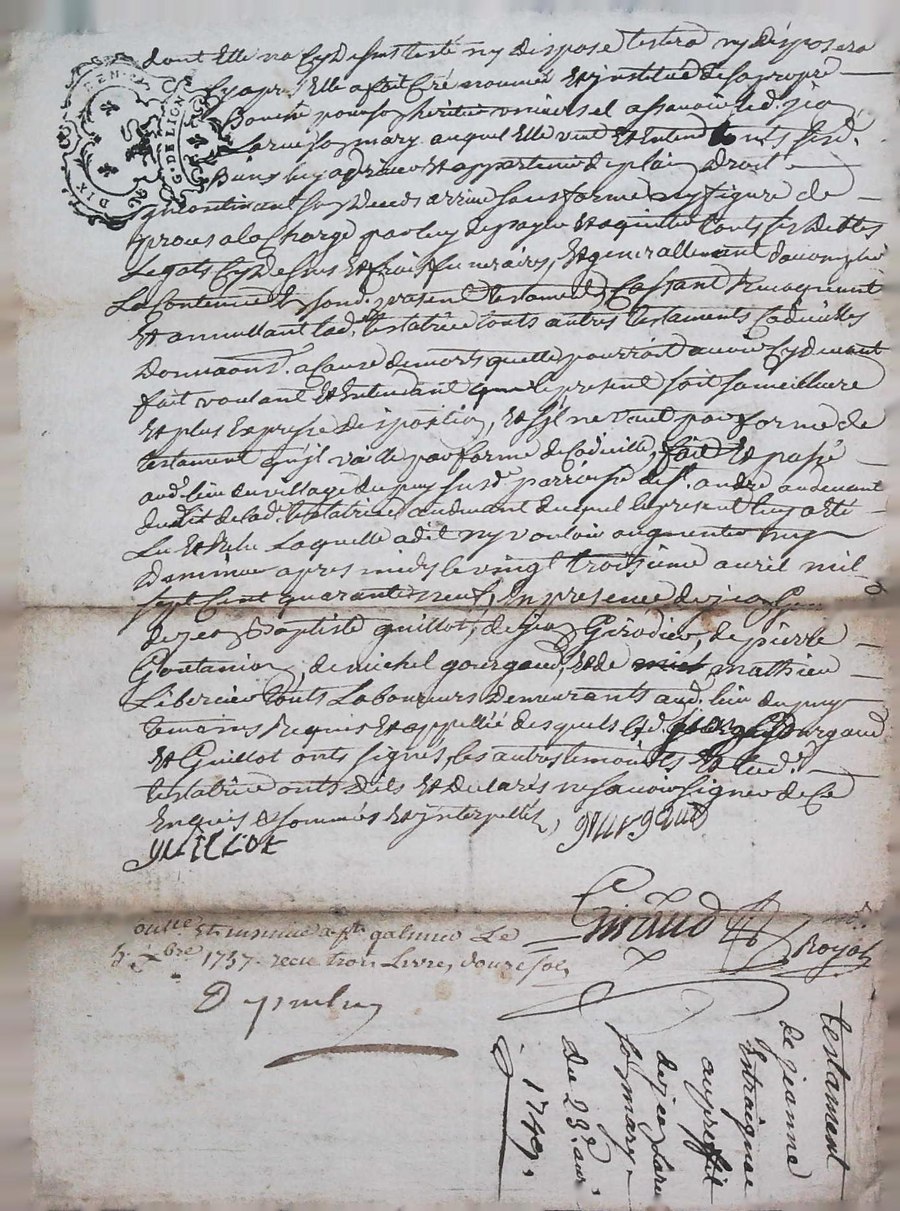 dont Elle na Cydessus testé ny dispose testera ny disposera
Cyapres Elle a fait Créé nommée Et jnstitué de sa propre
Bouche pour so heritier universel assavoir led. jea
Larue so mary auquel Elle veut Et Entend touts sesd.
Biens luy advenir et appartenir de plain Droit
jncontinant so Deceds arrivé sans forme ny figure de
proces a la Charge par luy de payer Et aquitter touts ses Dettes
Legats Cydessus Et frais funeraires, Et generallement daccomplir
Le Contenue En sond. present testament, Cassant Revoquant
Et annullant lad. testatrice touts autres testaments Codicilles
Donnaons. a Cause de mort quelle pourroit avoir Cydevant
fait voulant Et Entendant que le present soit sa meilleure
Et plus Expresse Disposition, Et sjl ne vaut par forme de
testament qujl vaille par forme de Codicille, fait Et passé
aud. lieu du village du puy susd. parroisse de St. andré audevant
du lit de lad. testatrice audevant duquel le present luy a été
Lu Et Relu Laquelle a dit ny vouloir augmenter ny
Diminuer apres midy le vingt troisieme avril mil
sept Cent quarante neuf, En presence de jea
de jea Baptiste guillot, de jea Girodier, de pierre
Goutanier, de michel gourgaud, Et de mathieu
Libercier touts Laboureurs Demeurants aud. lieu du puy
temoins Requis Et appellé desquels led. gourgaud
Et Guillot onts signés les autres temoints Et lad.
testatrice onts Dits Et Declarés ne scavoir signer de Ce
Enquis & sommés Et jnterpellés,
gourgaud
guillot
Giraud
Royal
Et jnsinué a st. galmier Le
5. xbre 1757. recu trois Livres, douze sols
G. DE LION
DIX DEN.
testament
de jeanne
Estraignae
au proffit
de jea Larue
so mary
du 23e. avr.
1749.